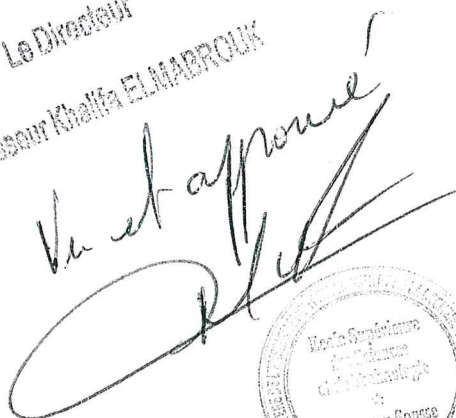 Le Directeur
Khalifa ELMABROUK
Vu et approuvé
Ecole Supérieure
des Sciences
et de Technologie
Sousse